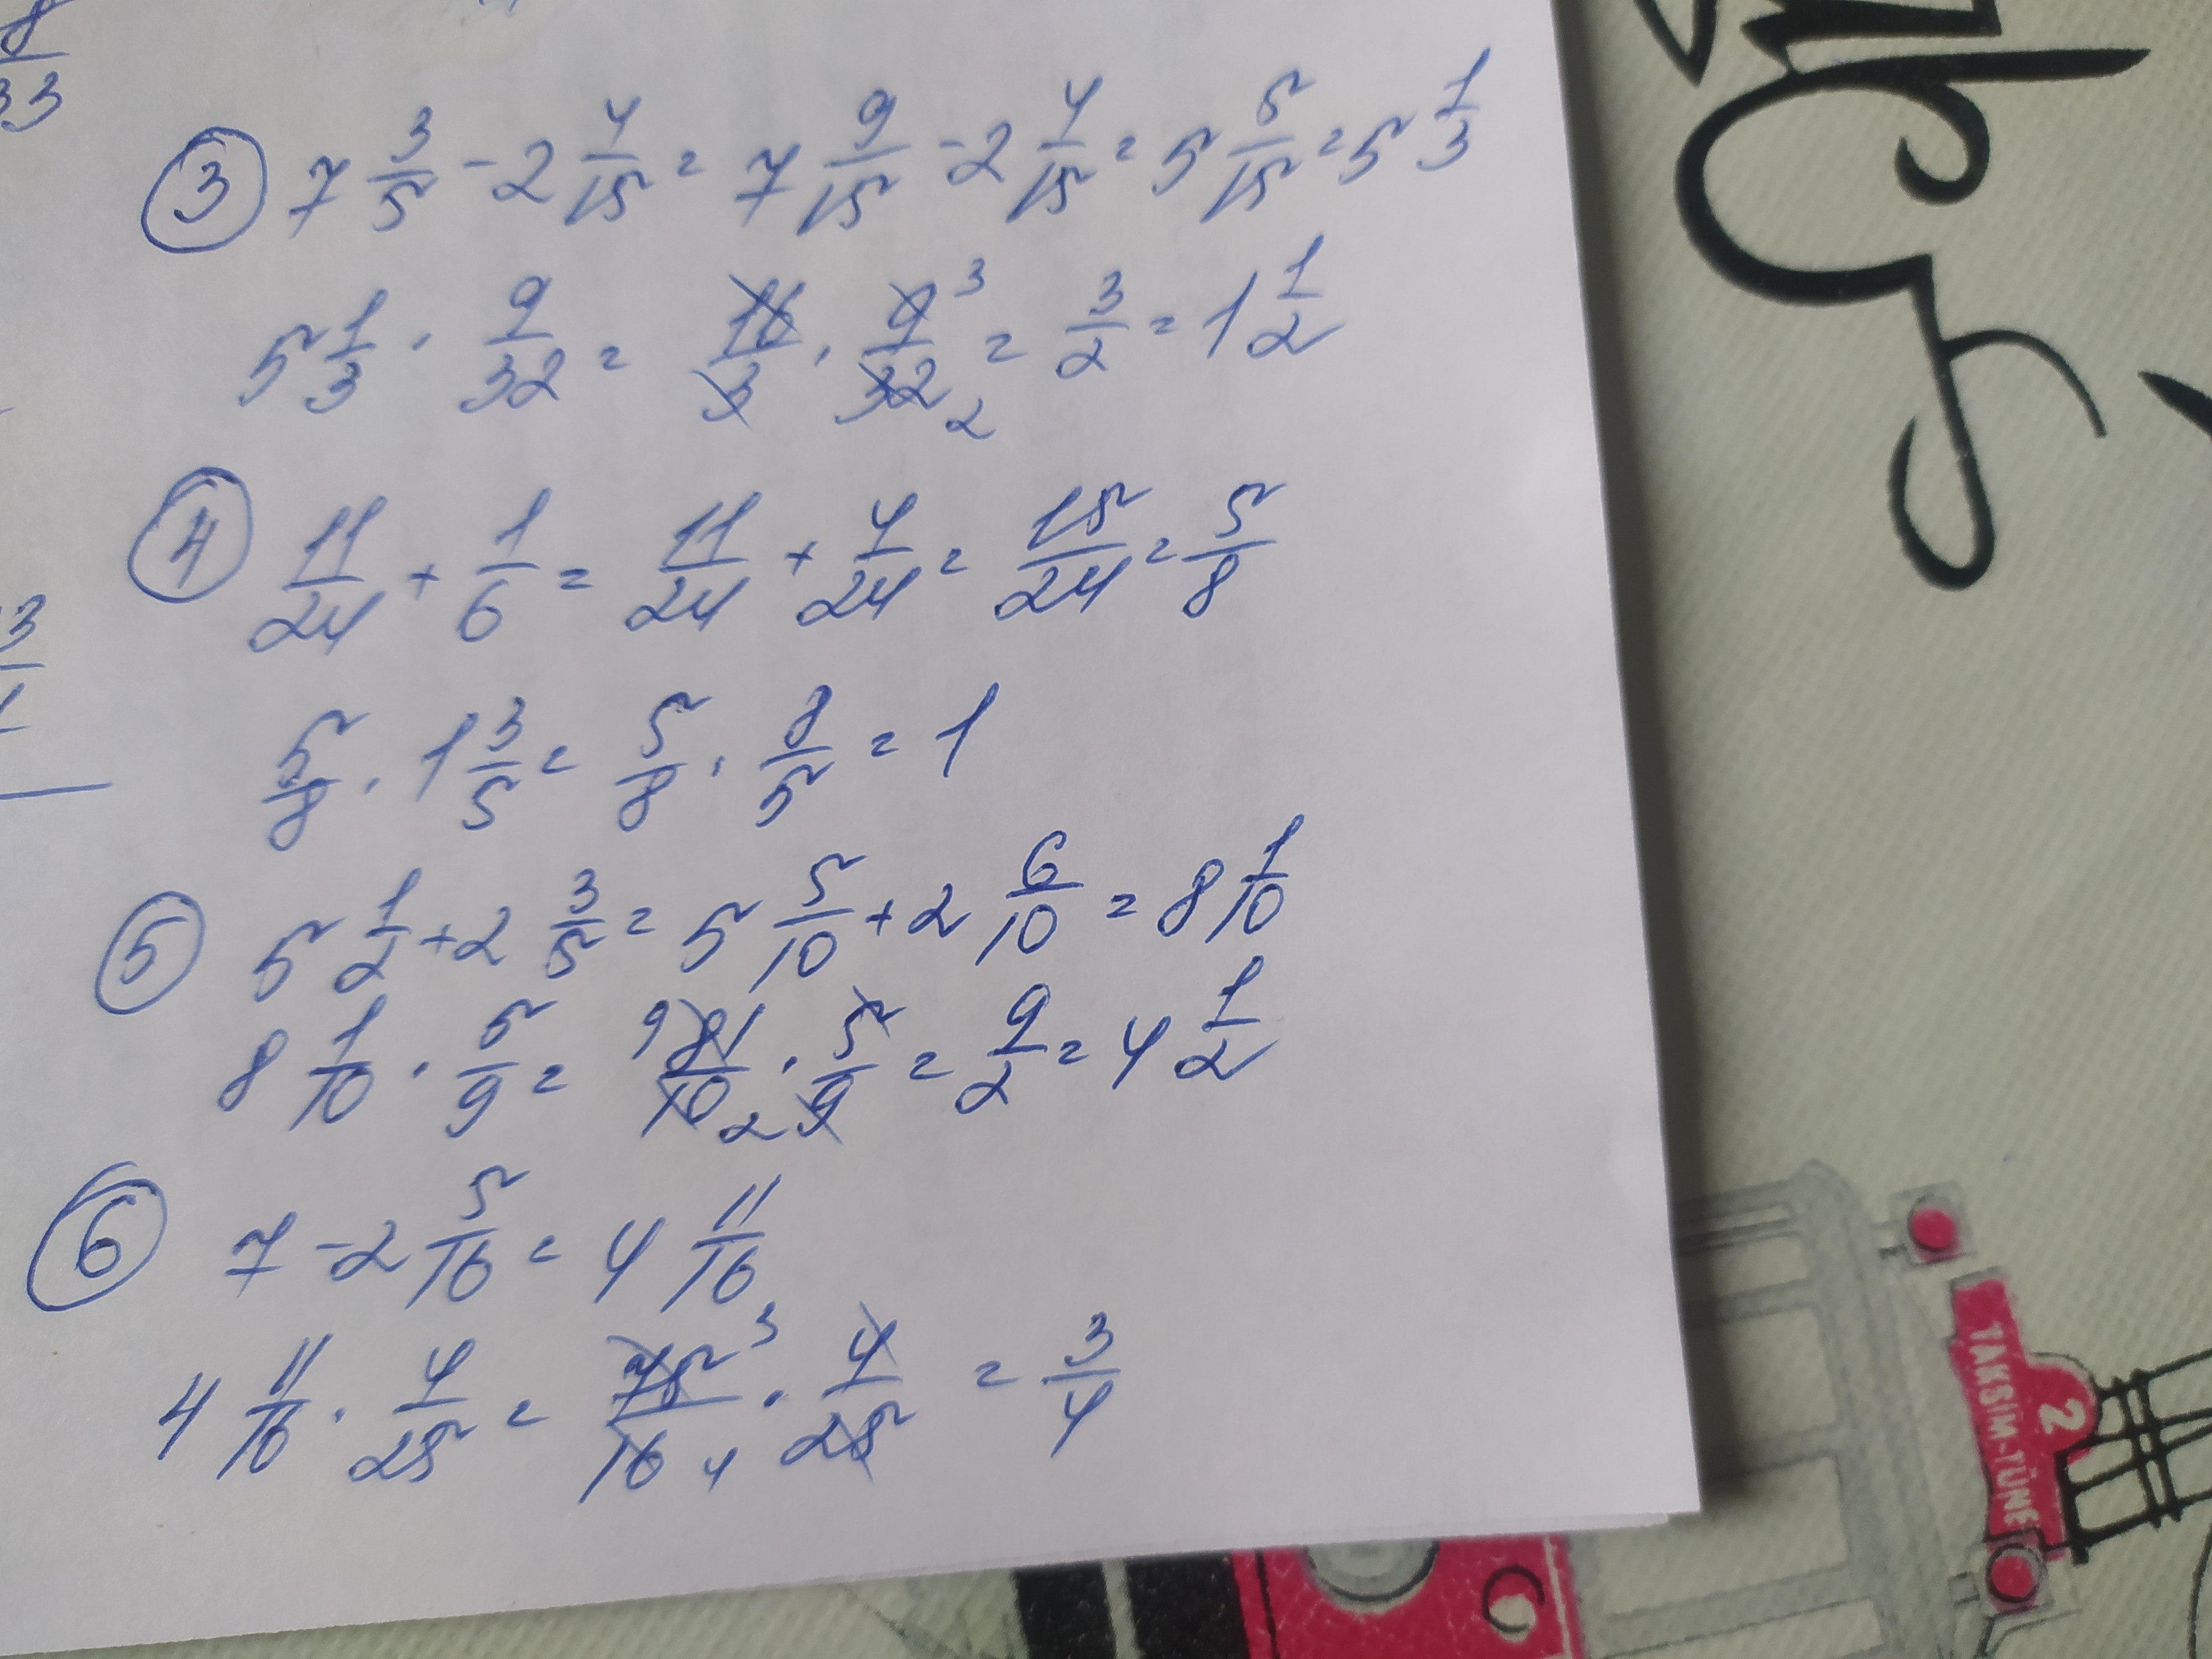 8/33
③ 7 3/5 - 2 4/15 = 7 9/15 - 2 4/15 = 5 5/15 = 5 1/3
5 1/3 · 9/32 = 16/3 · 9/32 3 2 = 3/2 = 1 1/2
④ 11/24 + 1/6 = 11/24 + 4/24 = 15/24 = 5/8
5/8 · 1 3/5 = 5/8 · 8/5 = 1
⑤ 5 1/2 + 2 3/5 = 5 5/10 + 2 6/10 = 8 1/10
8 1/10 · 5/9 = 9 81/10 2 · 5/9 = 9/2 = 4 1/2
⑥ 7 - 2 5/16 = 4 11/16
4 11/16 · 4/25 = 75/16 3 4 · 4/25 = 3/4
2
TAKSİM-TÜNE